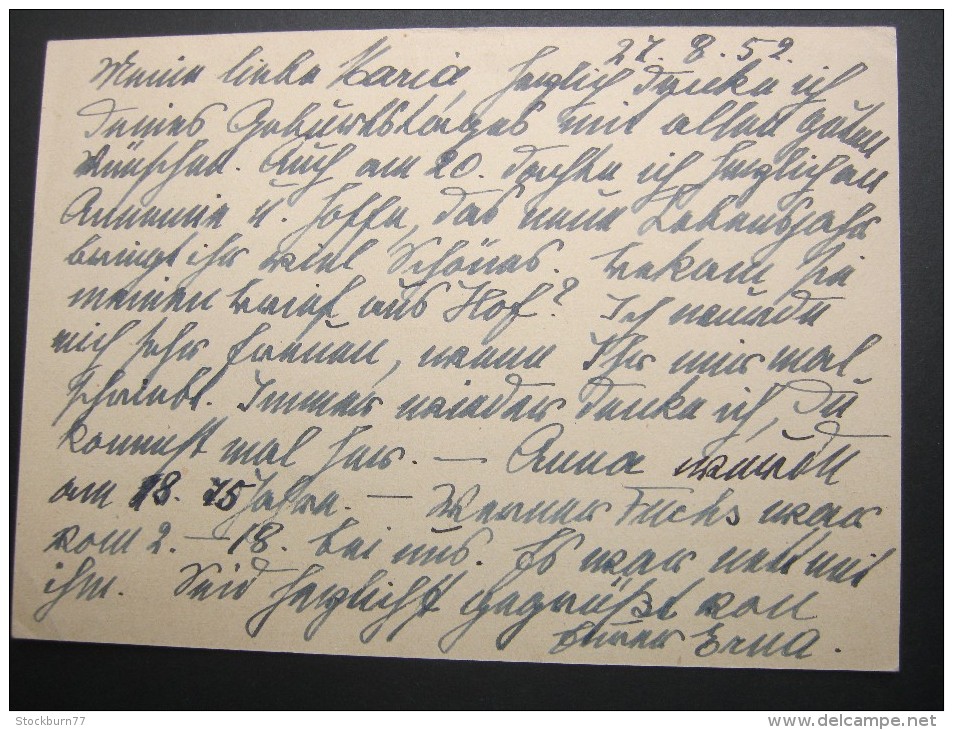 27. 8. 52.
Meine liebe Maria, herzlich denke ich
Deines Geburtstages mit allen guten
Wünschen. Auch am 20. dachte ich herzlich an
Annemie u. hoffe, das neue Lebensjahr
bringt ihr viel Schönes. Bekam sie
meinen Brief aus Hof? Ich würde
mich sehr freuen, wenn Ihr mir mal
schreibt. Immer wieder denke ich, Du
kommst mal her. — Anna wurde
am 18. 75 Jahre. — Werner Fuchs war
vom 2. – 18. bei uns. Es war nett mit
ihm. Seid herzlichst gegrüßt von
Eurer Erna.
Stockburn77
www.delcampe.net